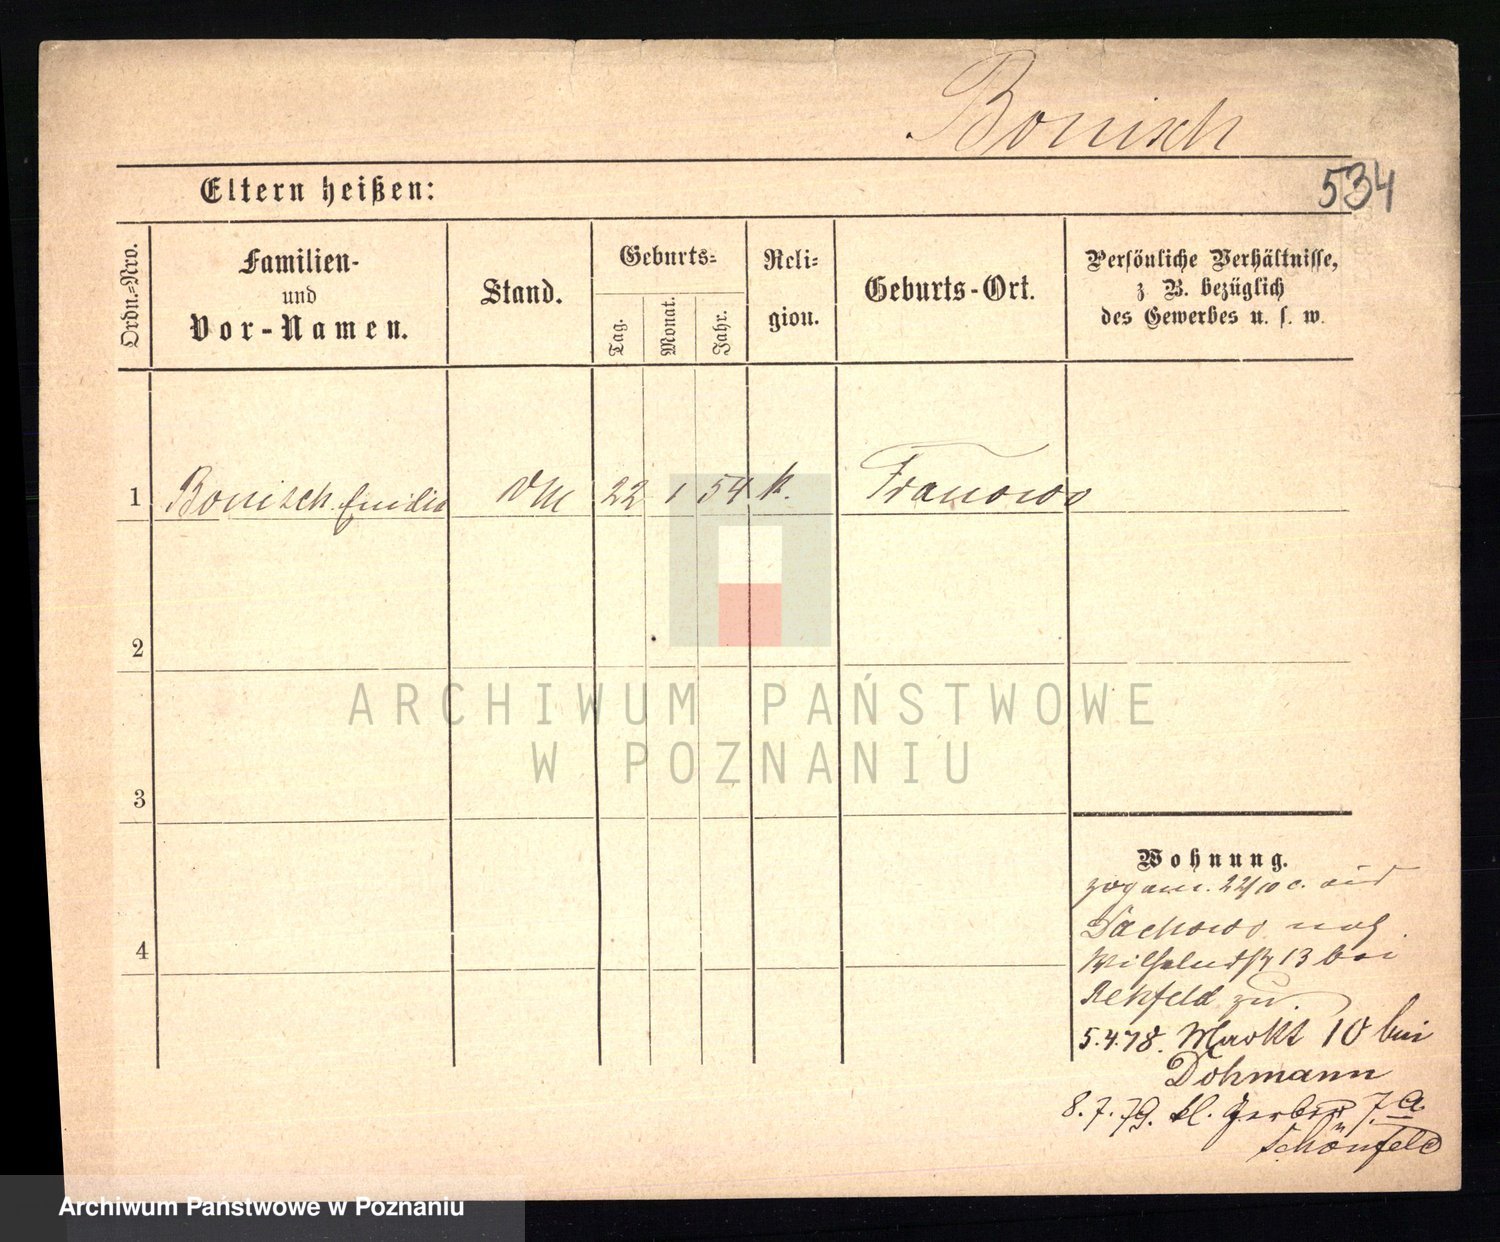 Bonisch
534
Eltern heißen:
Ordn.-Nro.
Familien-
und
Vor-Namen.
Stand.
Geburts-
Tag.
Monat.
Jahr.
Reli-
gion.
Geburts-Ort.
Persönliche Verhältnisse,
z B. bezüglich
des Gewerbes u. s. w.
1 Bonisch Emilie 22 1 54 k. Franowo
2
ARCHIWUM PAŃSTWOWE
W POZNANIU
3
4
Wohnung.
zog am 22/10 c. aus
nach
Wilhelmstr 13 bei
Rehfeld zu.
5.4.78. Markt 10 bei
Dohmann
8.7.79. kl. Gerberstr 7a
Schönfeld
Archiwum Państwowe w Poznaniu